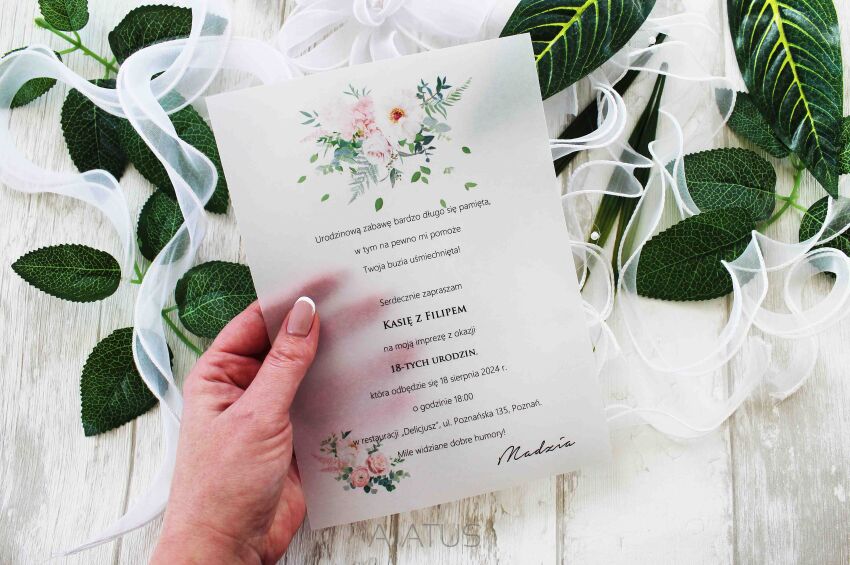 Urodzinową zabawę bardzo długo się pamięta,
w tym na pewno mi pomoże
Twoja buzia uśmiechnięta!
Serdecznie zapraszam
Kasię z Filipem
na moją imprezę z okazji
18-tych urodzin,
która odbędzie się 18 sierpnia 2024 r.
o godzinie 18:00
w restauracji „Delicjusz”, ul. Poznańska 135, Poznań.
Mile widziane dobre humory!
Madzia
AJATUS